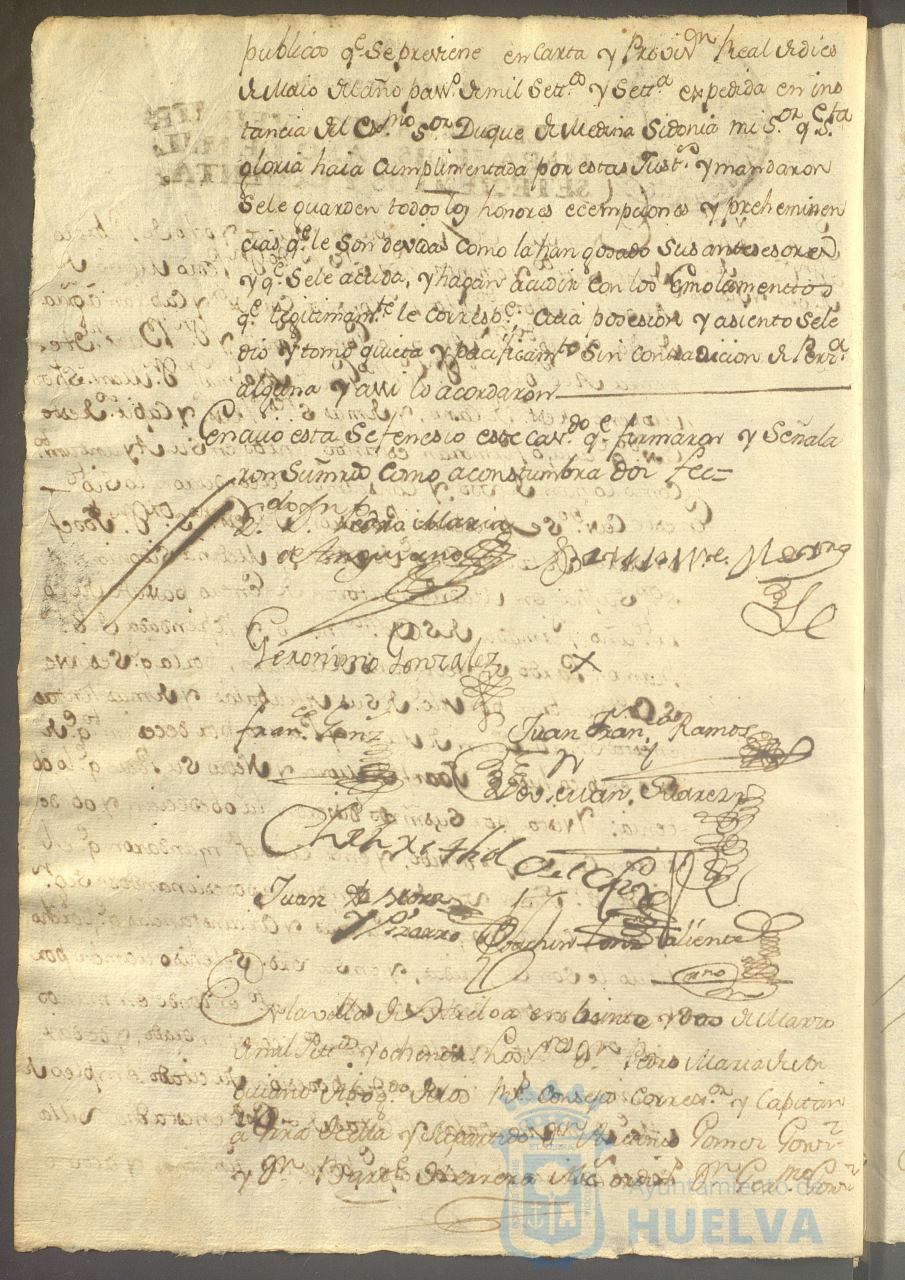 publicos q.e Se previene en Carta y Provis.n Real de dies
de Maio del año pas.o de mil Set.os y Set.a expedida en ins
tancia del Ex.mo S.or Duque de Medina Sidonia mi S.or q.e S.ta
gloria haia Cumplimentada por estas Just.s y mandaron
Sele guarden todos los honores ecempciones y preheminen
cias q.e le Son devidas como la han gosado Sus antesesores
y q.e Sele acuda, y hagan Acudir con los Emolumenctos
q.e legitimam.te le corresp.e Cuia posesion y asiento Sele
dio y tomo quieta y pacificam.te Sin contradicion de Pers.a
alguna y assi lo acordaron
Con cuio esta Se fenesio este cav.do q.e firmaron y Señala
ron Sus mrds como acostumbra doi fee=
L.do D. Pedro Maria
de Anguiano
Geronimo Gonzalez
Fran.co Gonz
Juan Fran.co Ramos
Jose Juan Suarez
Juan de Mora
y Pizarro
Joachin Gonz Valiente
En la villa de Huelva en beinte y dos de Marzo
de mil Set.os y ochenta los S.res D.n Pedro Maria de An
guiano Abog.do de los R.s Consejos Correg.r y Capitan
a Gra de ella y Su partido D.n Gomez
y D.n Herrera
Ayuntamiento de
HUELVA